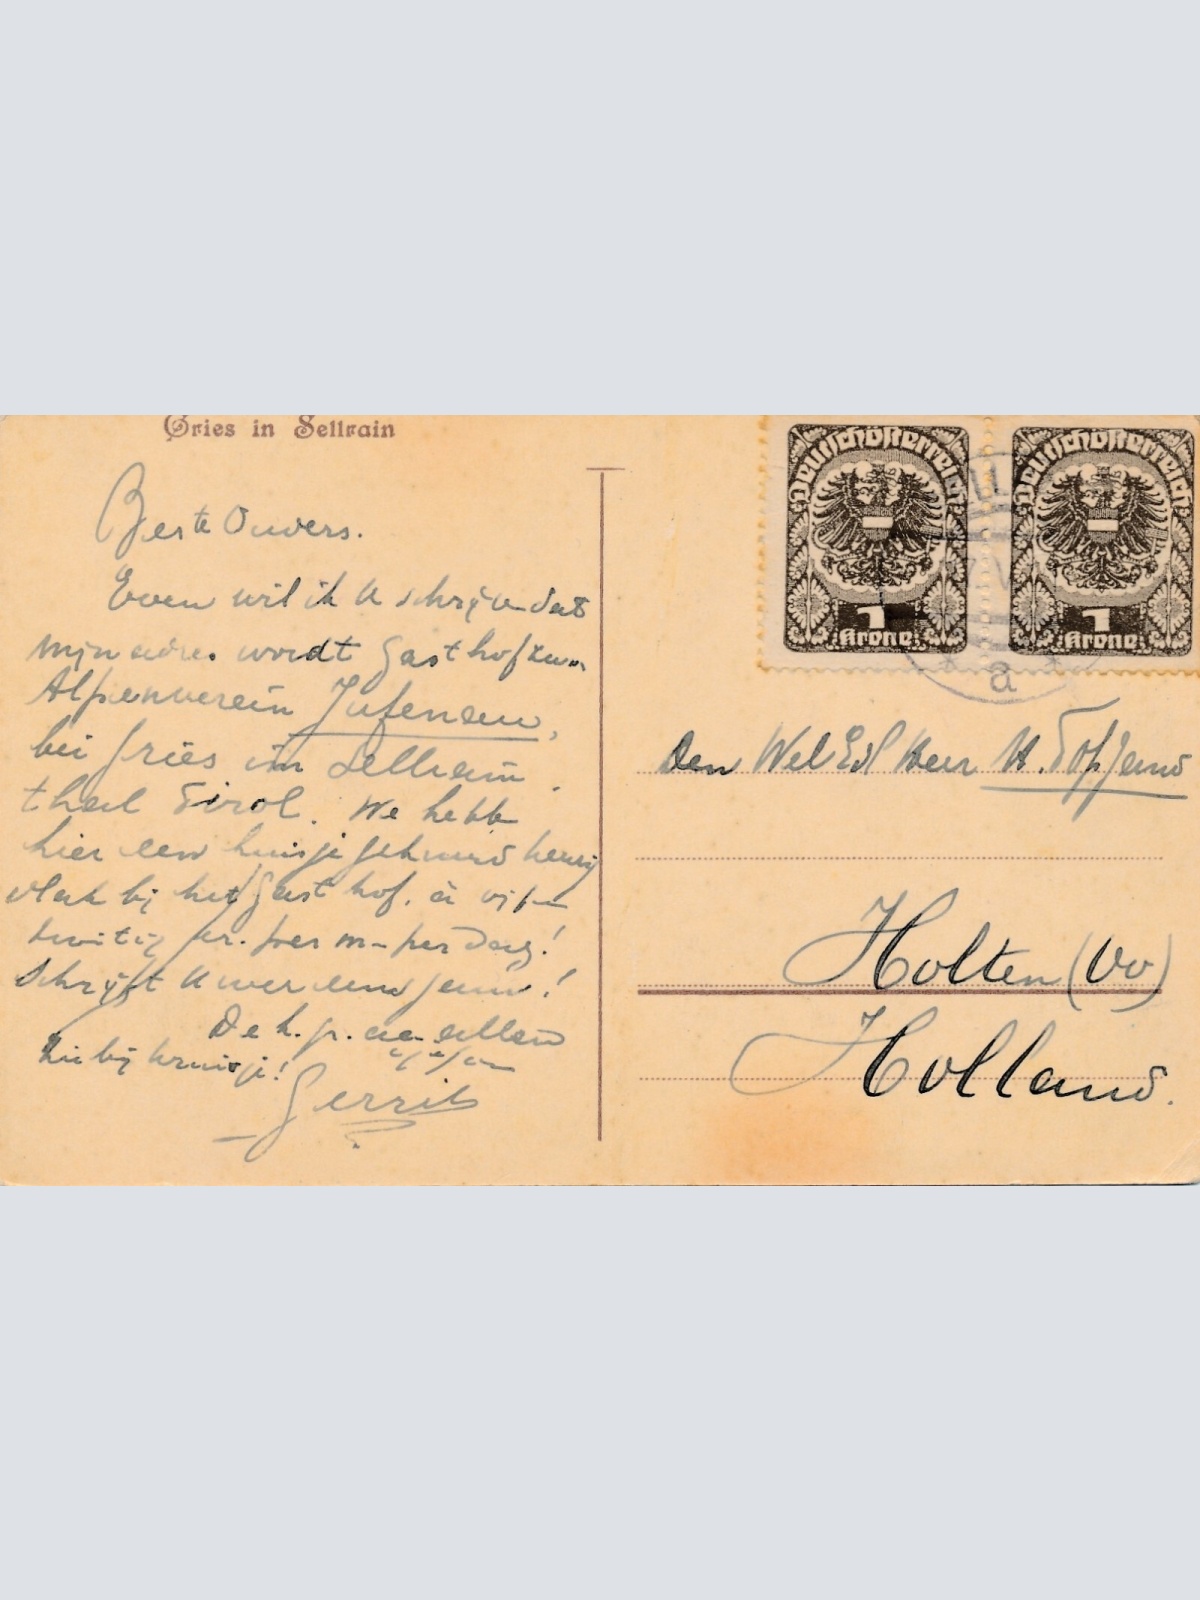 Gries in Sellrain
Beste Ouwers.
Even wil ik U schrijven dat
mijn adres wordt Gasthof zum
Alpenverein Jufenau,
bei Gries im Sellrain
thal Tirol. We hebbe
hier een huisje gehuurd
vlak bij het Gasthof. à vijf
twintig kr. per per dag!
Schrijft U weer eens gauw!
De h. gr. aan allen
hierbij kruisje!
Gerrit
Deutschösterreich
1
Krone
Deutschösterreich
1
Krone
a
Den Wel Ed Heer H.
Holten (Ov)
Holland.